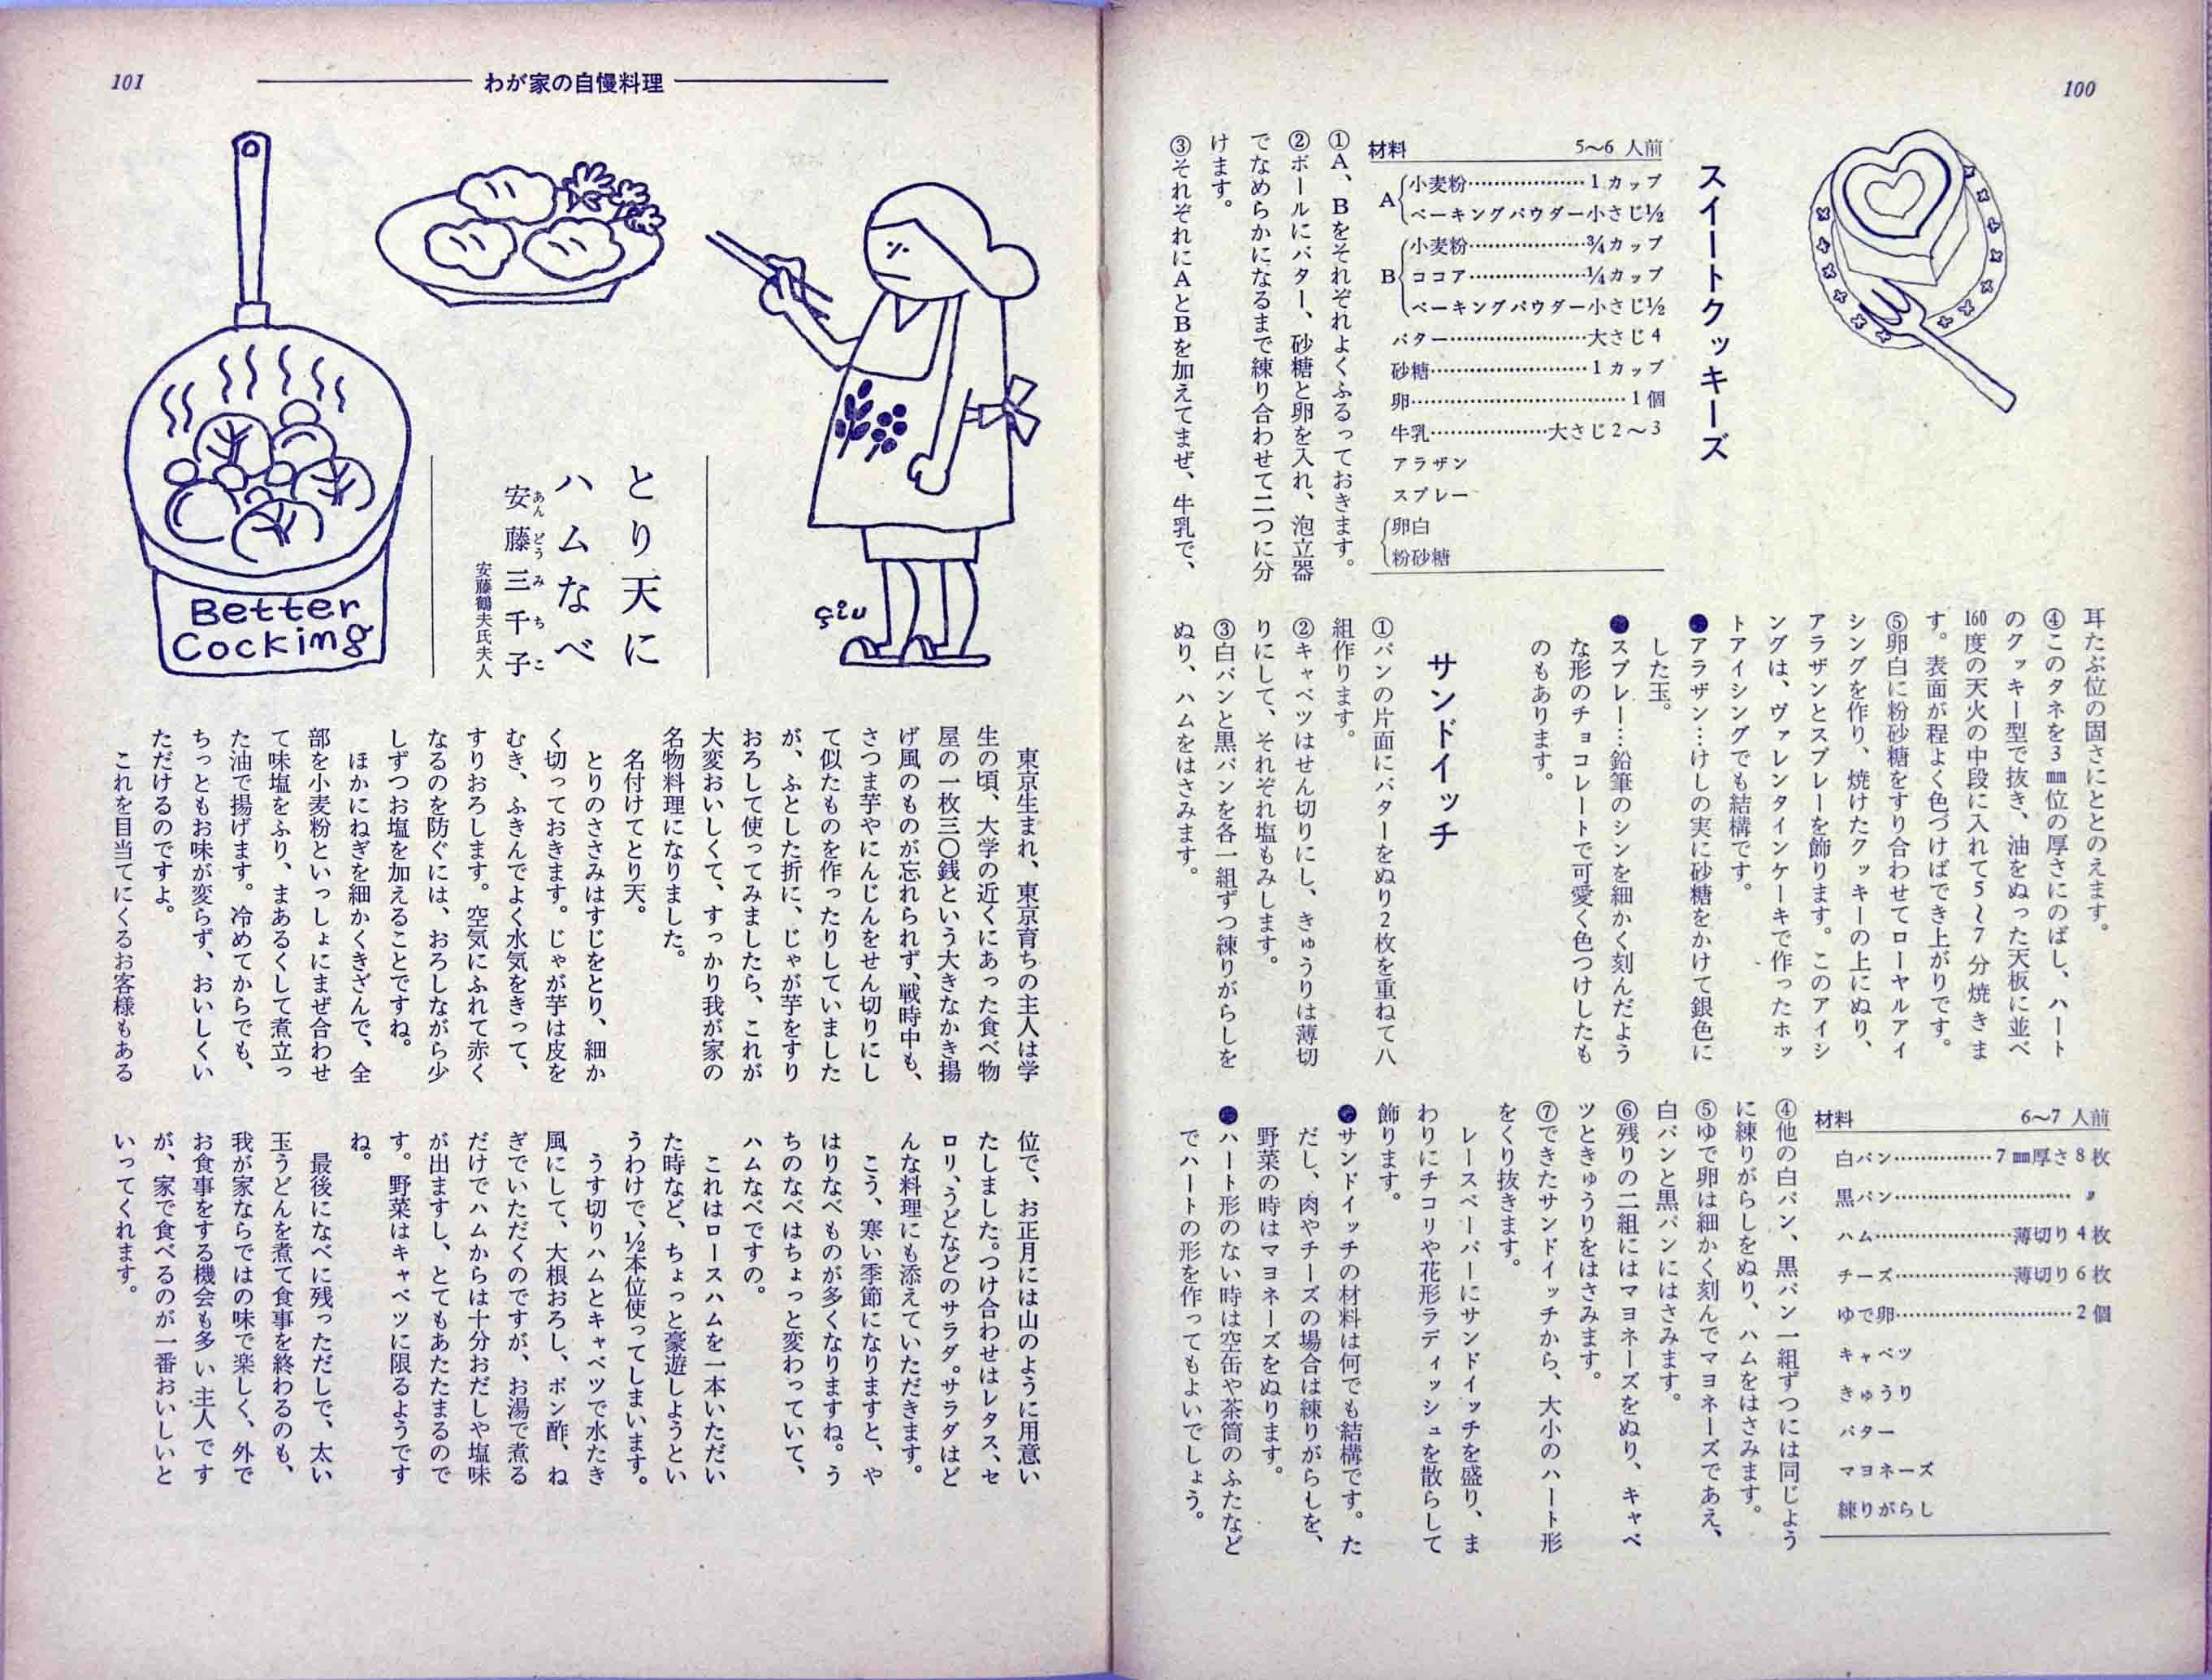 100
スイートクッキーズ
材料 5〜6人前
A 小麦粉………………1カップ
ベーキングパウダー小さじ½
B 小麦粉………………¾カップ
ココア………………¼カップ
ベーキングパウダー小さじ½
バター…………………大さじ4
砂糖……………………1カップ
卵……………………………1個
牛乳………………大さじ2〜3
アラザン
スプレー
卵白
粉砂糖
①A、Bをそれぞれよくふるっておきます。
②ボールにバター、砂糖と卵を入れ、泡立器
でなめらかになるまで練り合わせて二つに分
けます。
③それぞれにAとBを加えてまぜ、牛乳で、
耳たぶ位の固さにととのえます。
④このタネを3㎜位の厚さにのばし、ハート
のクッキー型で抜き、油をぬった天板に並べ
160度の天火の中段に入れて5〜7分焼きま
す。表面が程よく色づけばでき上がりです。
⑤卵白に粉砂糖をすり合わせてローヤルアイ
シングを作り、焼けたクッキーの上にぬり、
アラザンとスプレーを飾ります。このアイシ
ングは、ヴァレンタインケーキで作ったホッ
トアイシングでも結構です。
●アラザン…けしの実に砂糖をかけて銀色に
した玉。
●スプレー…鉛筆のシンを細かく刻んだよう
な形のチョコレートで可愛く色つけしたも
のもあります。
サンドイッチ
①パンの片面にバターをぬり2枚を重ねて八
組作ります。
②キャベツはせん切りにし、きゅうりは薄切
りにして、それぞれ塩もみします。
③白パンと黒パンを各一組ずつ練りがらしを
ぬり、ハムをはさみます。
材料 6〜7人前
白パン……………7㎜厚さ8枚
黒パン………………………〃
ハム…………………薄切り4枚
チーズ………………薄切り6枚
ゆで卵………………………2個
キャベツ
きゅうり
バター
マヨネーズ
練りがらし
④他の白パン、黒パン一組ずつには同じよう
に練りがらしをぬり、ハムをはさみます。
⑤ゆで卵は細かく刻んでマヨネーズであえ、
白パンと黒パンにはさみます。
⑥残りの二組にはマヨネーズをぬり、キャベ
ツときゅうりをはさみます。
⑦できたサンドイッチから、大小のハート形
をくり抜きます。
レースペーパーにサンドイッチを盛り、ま
わりにチコリや花形ラディッシュを散らして
飾ります。
●サンドイッチの材料は何でも結構です。た
だし、肉やチーズの場合は練りがらしを、
野菜の時はマヨネーズをぬります。
●ハート形のない時は空缶や茶筒のふたなど
でハートの形を作ってもよいでしょう。
わが家の自慢料理
101
çiu
Better
Cocking
とり天に
ハムなべ
安藤三千子
あんどうみちこ
安藤鶴夫氏夫人
東京生まれ、東京育ちの主人は学
生の頃、大学の近くにあった食べ物
屋の一枚三〇銭という大きなかき揚
げ風のものが忘れられず、戦時中も、
さつま芋やにんじんをせん切りにし
て似たものを作ったりしていました
が、ふとした折に、じゃが芋をすり
おろして使ってみましたら、これが
大変おいしくて、すっかり我が家の
名物料理になりました。
名付けてとり天。
とりのささみはすじをとり、細か
く切っておきます。じゃが芋は皮を
むき、ふきんでよく水気をきって、
すりおろします。空気にふれて赤く
なるのを防ぐには、おろしながら少
しずつお塩を加えることですね。
ほかにねぎを細かくきざんで、全
部を小麦粉といっしょにまぜ合わせ
て味塩をふり、まあるくして煮立っ
た油で揚げます。冷めてからでも、
ちっともお味が変らず、おいしくい
ただけるのですよ。
これを目当てにくるお客様もある
位で、お正月には山のように用意い
たしました。つけ合わせはレタス、セ
ロリ、うどなどのサラダ。サラダはど
んな料理にも添えていただきます。
こう、寒い季節になりますと、や
はりなべものが多くなりますね。う
ちのなべはちょっと変わっていて、
ハムなべですの。
これはロースハムを一本いただい
た時など、ちょっと豪遊しようとい
うわけで、½本位使ってしまいます。
うす切りハムとキャベツで水たき
風にして、大根おろし、ポン酢、ね
ぎでいただくのですが、お湯で煮る
だけでハムからは十分おだしや塩味
が出ますし、とてもあたたまるので
す。野菜はキャベツに限るようです
ね。
最後になべに残っただしで、太い
玉うどんを煮て食事を終わるのも、
我が家ならではの味で楽しく、外で
お食事をする機会も多い主人です
が、家で食べるのが一番おいしいと
いってくれます。